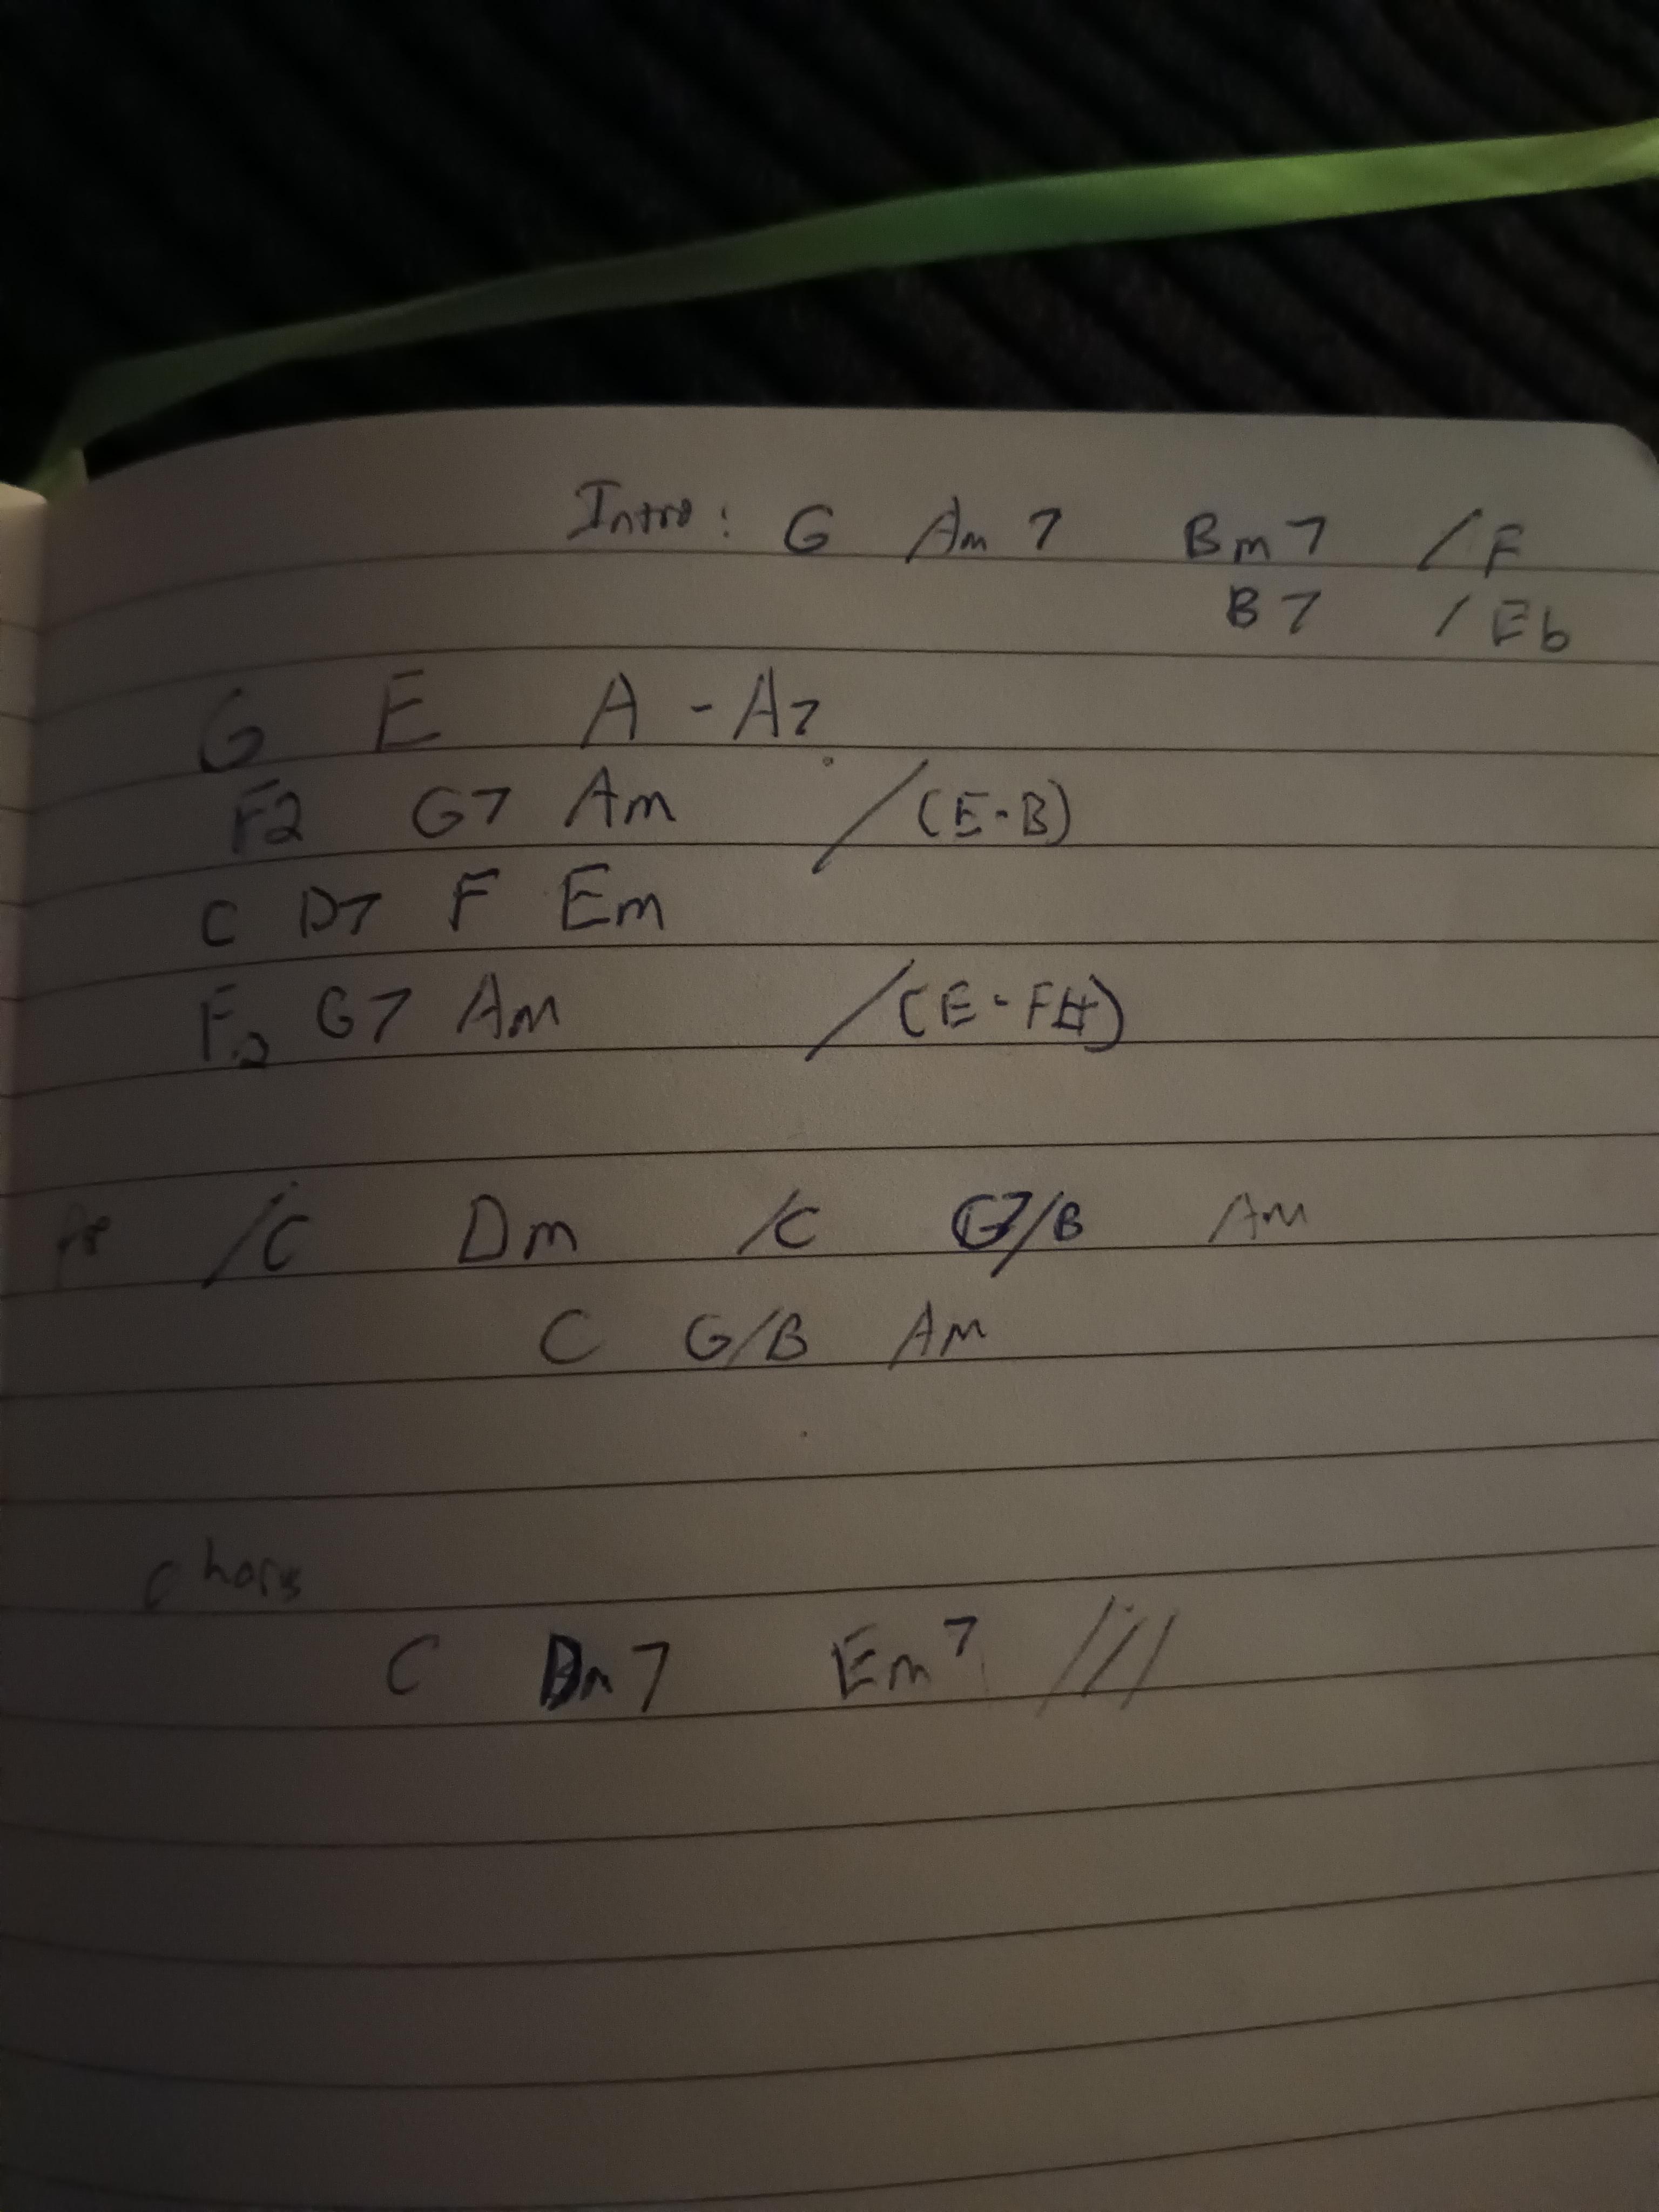 Intro: G Am7 Bm7 /F
B7 /Eb
G E A - A7
F2 G7 Am /(E-B)
C D7 F Em
F2 G7 Am /(E-F#)
/C Dm /C G7/B Am
C G/B Am
C Dm7 Em7 ///